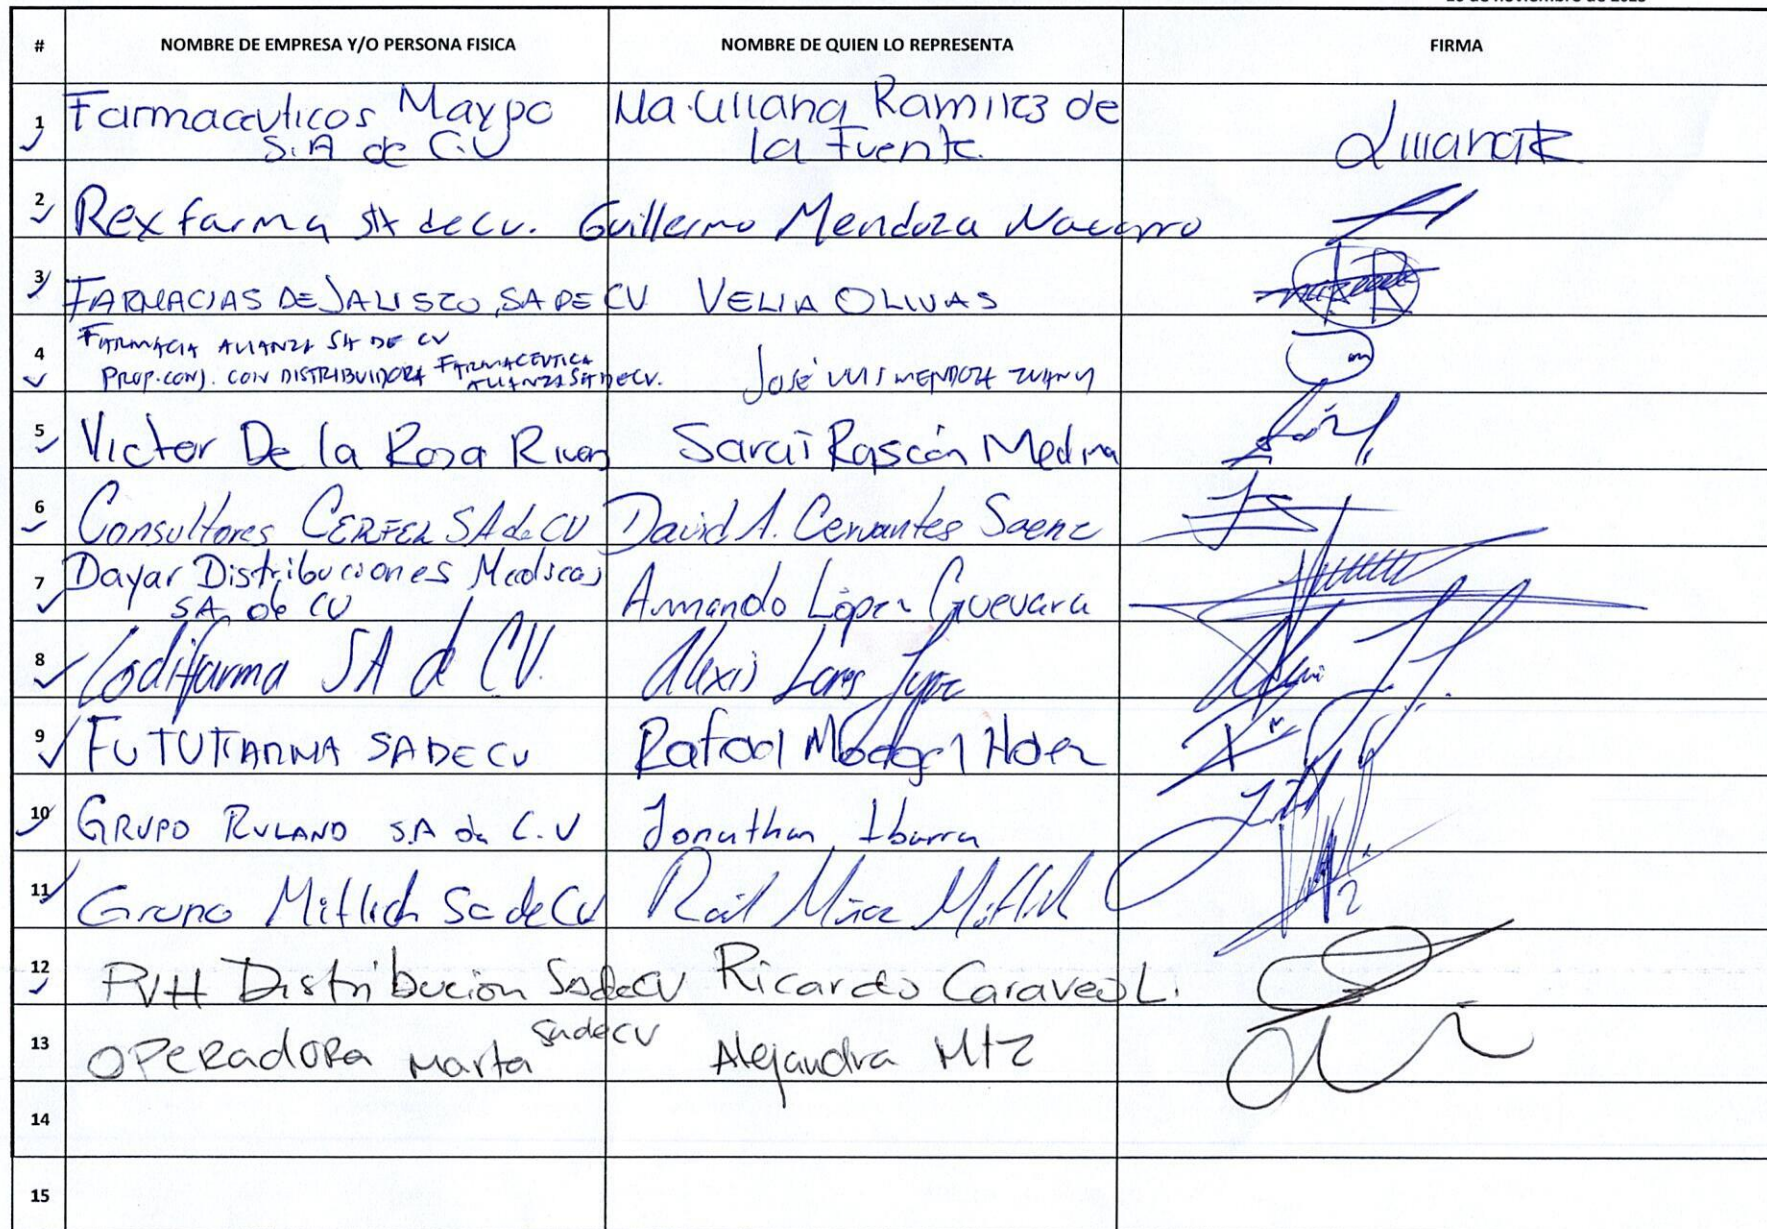 #
NOMBRE DE EMPRESA Y/O PERSONA FISICA
NOMBRE DE QUIEN LO REPRESENTA
FIRMA
1
Farmaceuticos Maypo
S.A de C.V
Ma. Liliana Ramirez de
la Fuente.
LilianaR
2
Rexfarma SA de CV.
Guillermo Mendoza Navarro
3
FARMACIAS DE JALISCO, SA DE CV
VELIA OLIVAS
4
FARMACIA ALIANZA SA DE CV
PROP. CONJ. CON DISTRIBUIDORA FARMACEUTICA
ALIANZA SA DE CV.
JOSÉ LUIS MENDOZA
5
Victor De la Rosa Rivera
Sarai Rascón Medina
6
Consultores CERFER SA de CV
David A. Cervantes Saenz
7
Dayar Distribuciones Medicas
SA de CV
Armando López Guevara
8
Codifarma SA de CV.
Alexis Lares
9
FUTUFARMA SA DE CV
Rafael Madrigal Hdez
10
GRUPO RULAND S.A de C.V
Jonathan Ibarra
11
Grupo Mitlich Sa de CV
Raúl Mitlich
12
PVH Distribucion SadeCV
Ricardo Caraveo L.
13
OPeRadORa Marta SadeCV
Alejandra Mtz
14
15